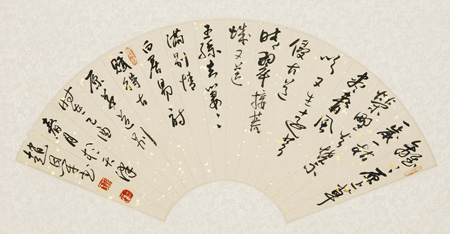 離離原上草
一歲一枯
榮野火燒
不盡春風
吹又生遠芳
侵古道
晴翠接荒
城又送
王孫去萋萋
滿別情
白居易詩
賦得古
原草送別
時在乙酉
春月於天津